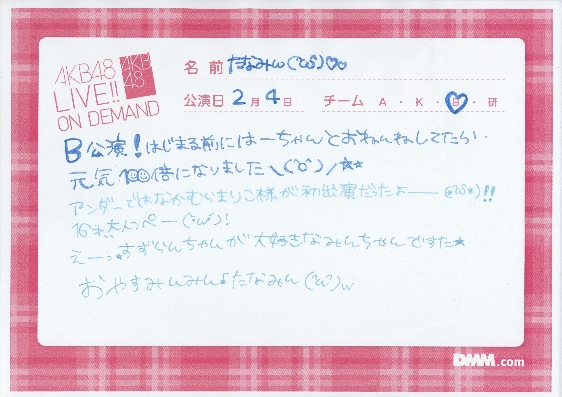 AKB48
LIVE!!
ON DEMAND
AKB
48
名前 たなみん(´ω`)♡♡
公演日 2月4日 チーム A・K・B・研
B公演！はじまる前にはーちゃんとおねんねしてたら・
元気100倍になりました＼(^o^)／☆★
アンダーではなかむらまりこ様が初出演だったよー––(*´ω`*)!!
16才だっぺー(´ω`)!
えーっ*すずらんちゃんが大好きなみんちゃんですた★
おやすみんみん♪たなみん(´ω`)w
DMM.com